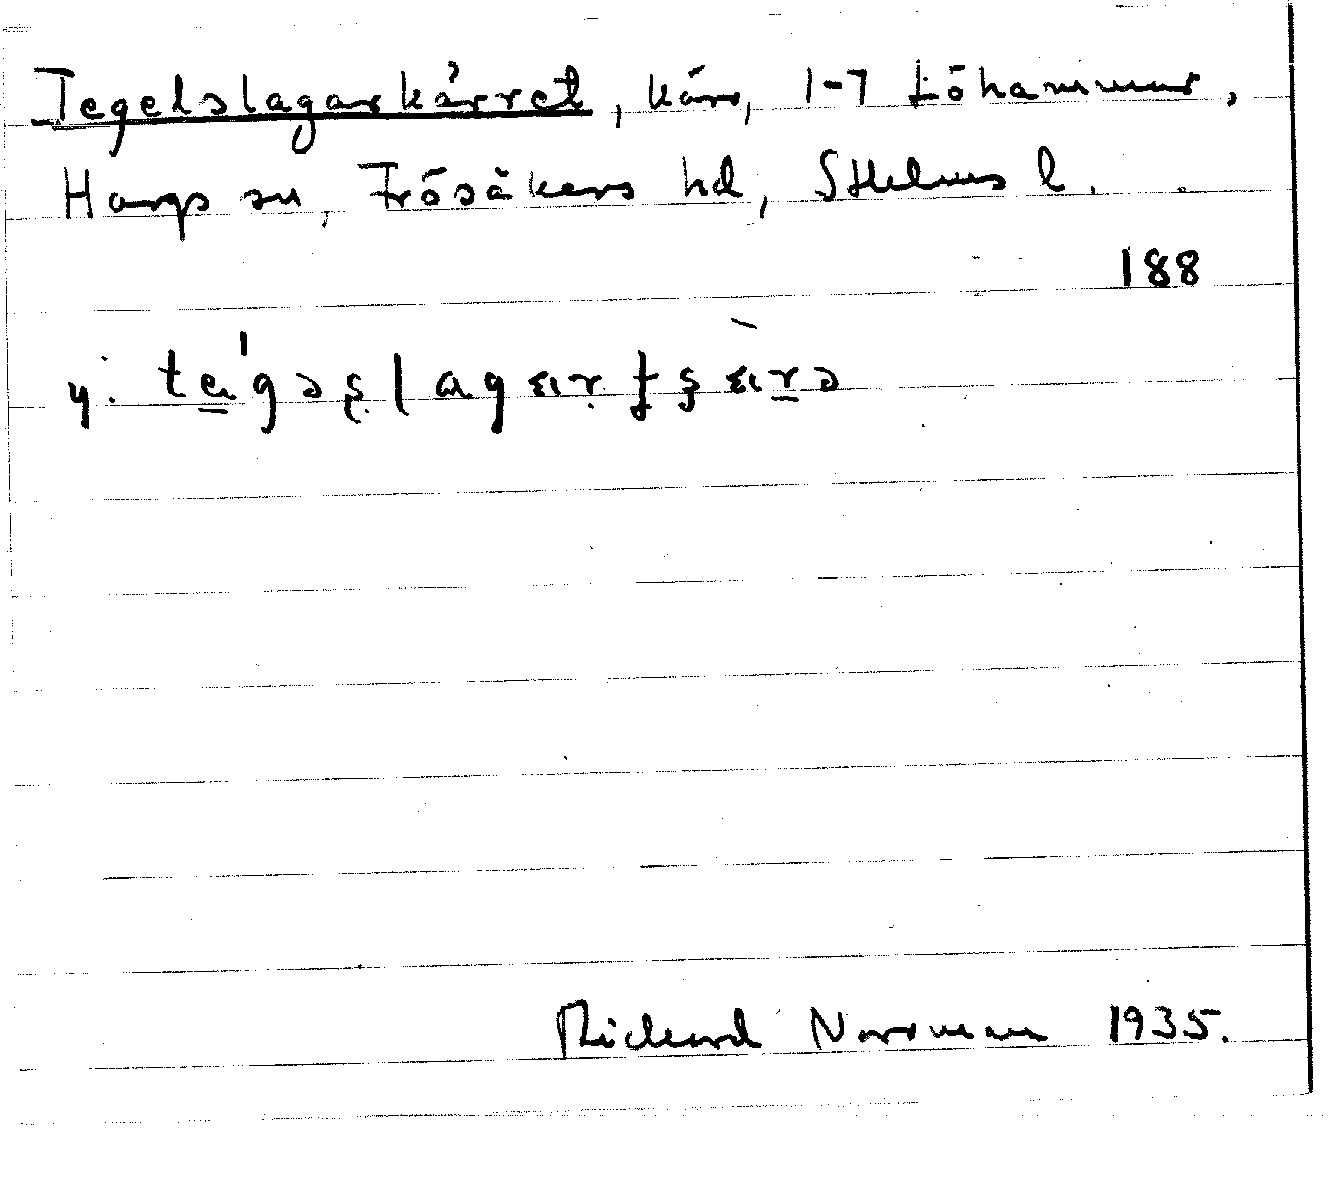 Tegelslagarkärret, kärr, 1-7 Löhammar,
Hargs sn, Frösåkers hd, Sthlms l.
188
y. te̠'gəʂlagaɛrʈʂɛ̀r̠ə
Rickard Norrman 1935.